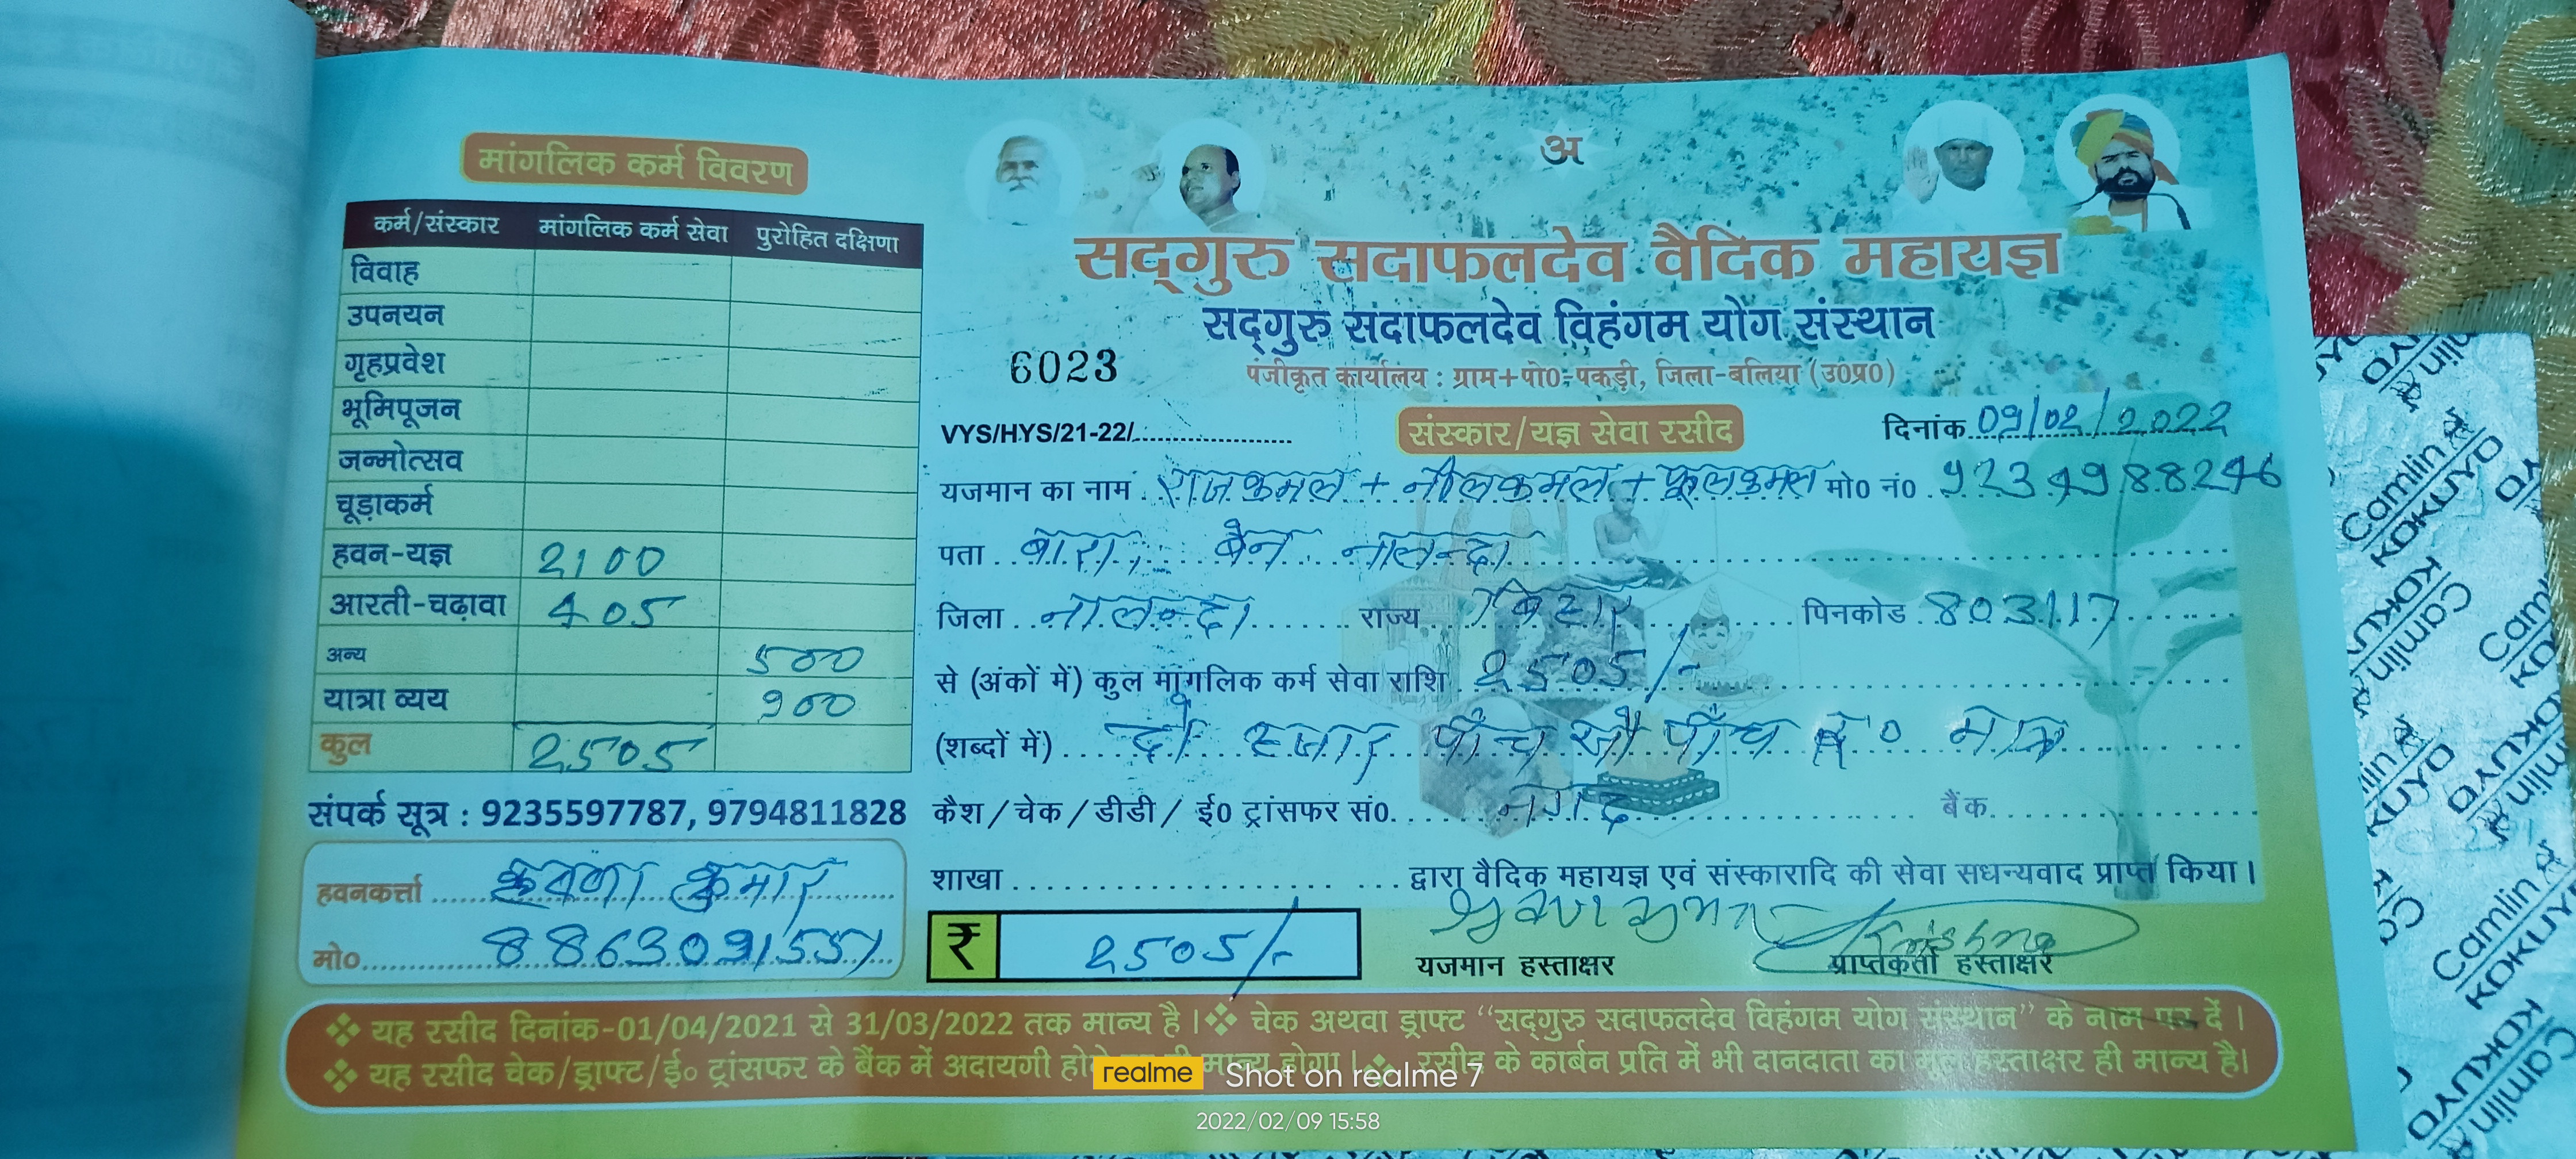 मांगलिक कर्म विवरण
कर्म/संस्कार मांगलिक कर्म सेवा पुरोहित दक्षिणा
विवाह
उपनयन
गृहप्रवेश
भूमिपूजन
जन्मोत्सव
चूड़ाकर्म
हवन-यज्ञ 2100
आरती-चढ़ावा 405
अन्य 500
यात्रा व्यय 900
कुल 2505
संपर्क सूत्र : 9235597787, 9794811828
हवनकर्त्ता कुमार
मो० 8863091551
अ
सद्गुरु सदाफलदेव वैदिक महायज्ञ
सद्गुरु सदाफलदेव विहंगम योग संस्थान
6023 पंजीकृत कार्यालय : ग्राम+पो०-पकड़ी, जिला-बलिया (उ०प्र०)
VYS/HYS/21-22/ संस्कार/यज्ञ सेवा रसीद दिनांक 09/02/2022
यजमान का नाम राजकमल + नीलकमल + फूलकमल मो० नं० 9234988246
पता बारा, बेन नालन्दा
जिला नालन्दा राज्य बिहार पिनकोड 803117
से (अंकों में) कुल मांगलिक कर्म सेवा राशि 2505/-
(शब्दों में) दो हजार पाँच सौ पाँच रू० मात्र
कैश/चेक/डीडी/ ई० ट्रांसफर सं०. नगद बैंक
शाखा द्वारा वैदिक महायज्ञ एवं संस्कारादि की सेवा सधन्यवाद प्राप्त किया।
₹ 2505/-
Krishna
यजमान हस्ताक्षर प्राप्तकर्ता हस्ताक्षर
❖ यह रसीद दिनांक-01/04/2021 से 31/03/2022 तक मान्य है। ❖ चेक अथवा ड्राफ्ट "सद्गुरु सदाफलदेव विहंगम योग संस्थान" के नाम पर दें।
❖ यह रसीद चेक/ड्राफ्ट/ई० ट्रांसफर के बैंक में अदायगी मान्य होगा। ❖ रसीद के कार्बन प्रति में भी दानदाता का मूल हस्ताक्षर ही मान्य है।
realme Shot on realme 7
2022/02/09 15:58
Camlin
KOKUYO